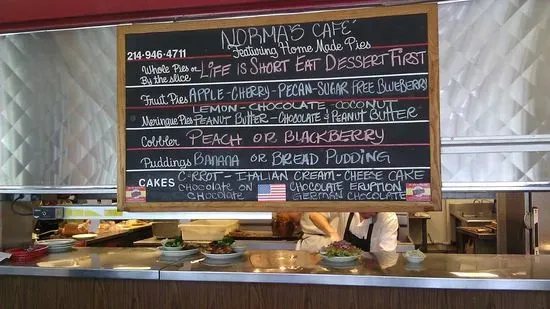 NORMA'S CAFE'
214-946-4711
Featuring Home Made Pies
Whole Pies or By the slice - LIFE IS SHORT EAT DESSERT FIRST
Fruit Pies APPLE-CHERRY-PECAN-SUGAR FREE BLUEBERRY
LEMON-CHOCOLATE, COCONUT
Meringue Pies PEANUT BUTTER - CHOCOLATE & PEANUT BUTTER
Cobbler PEACH OR BLACKBERRY
Puddings BANANA OR BREAD PUDDING
CAKES CARROT-ITALIAN CREAM-CHEESE CAKE
CHOCOLATE ON CHOCOLATE CHOCOLATE ERUPTION
GERMAN CHOCOLATE